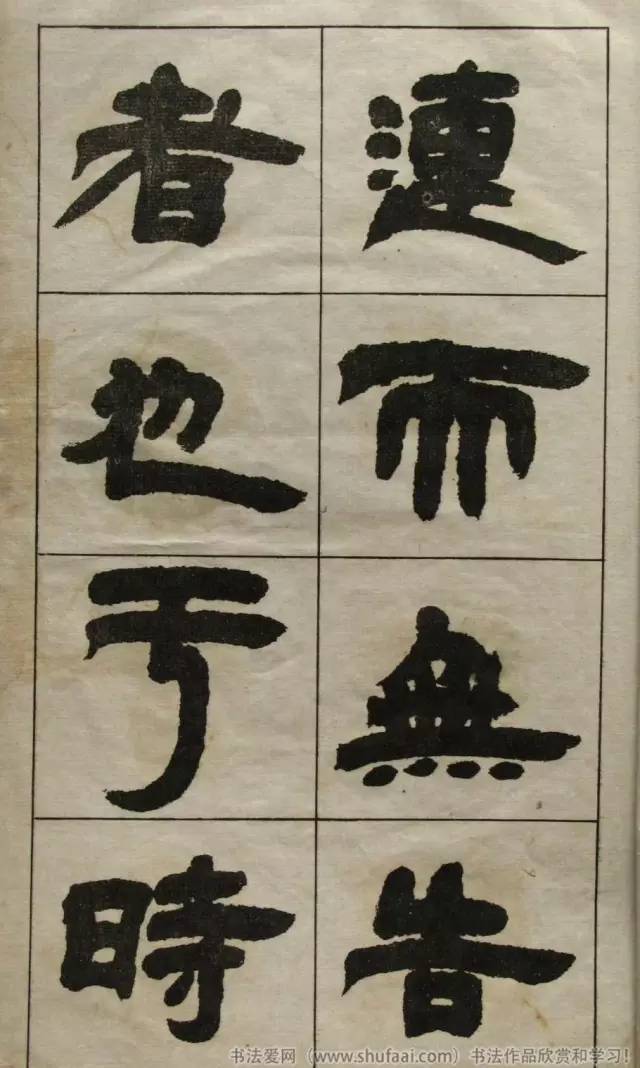 連而無告
者也于時
书法爱网（www.shufaai.com）书法作品欣赏和学习!